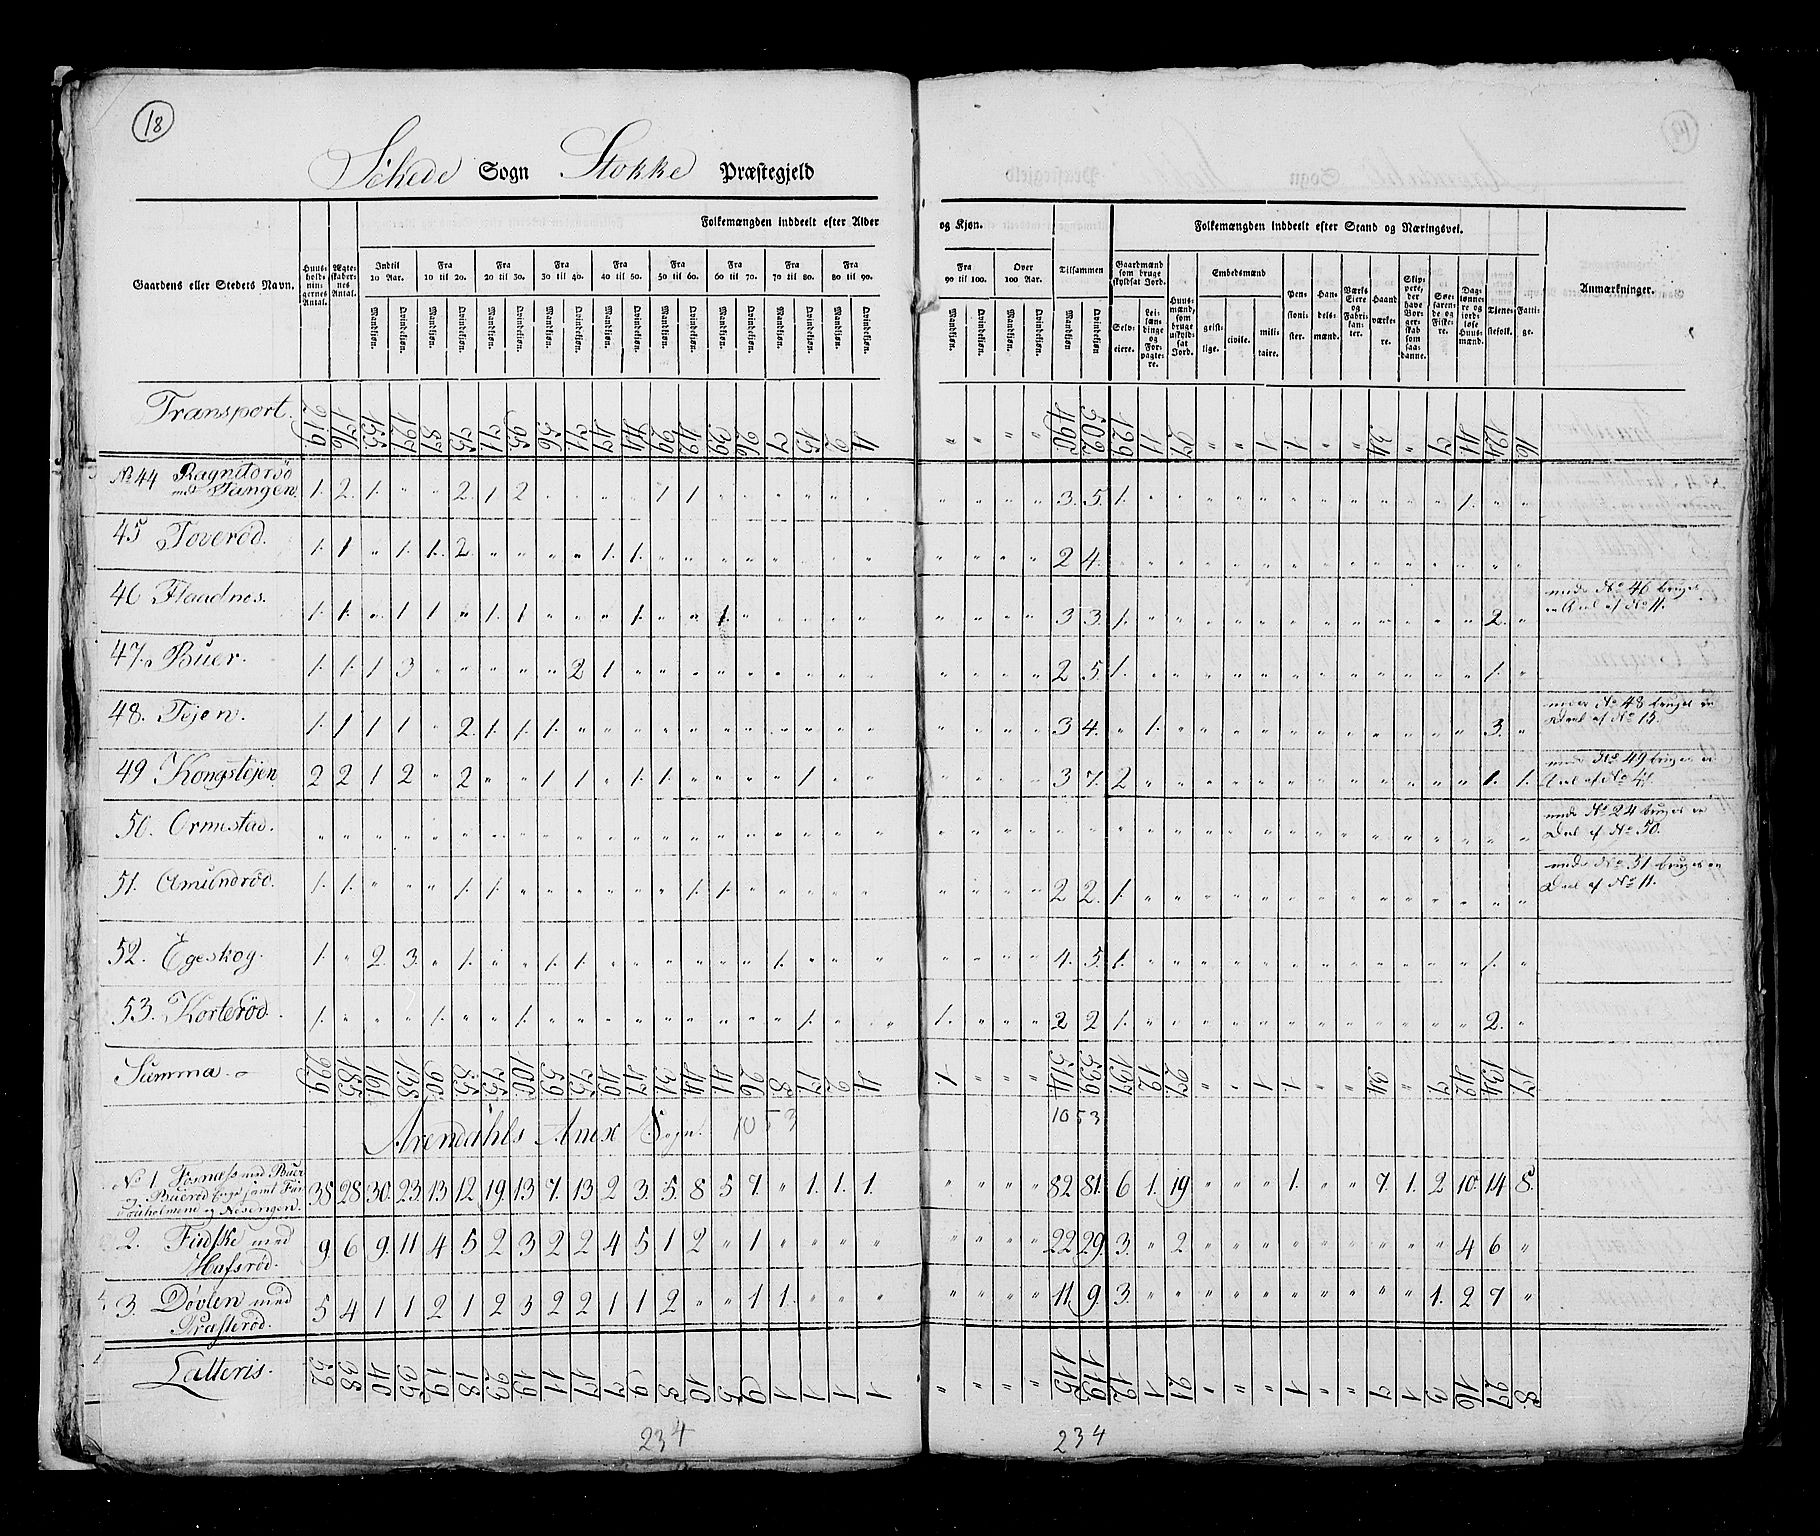 18
Schede Sogn Stokke Præstegjeld
Folkemængden inddeelt efter Alder og Kjøn. Folkemængden inddeelt efter Stand og Næringsvei.
Gaardens eller Stedets Navn. Huusholdningernes Antal. Ægteskabernes Antal. Indtil 10 Aar. Fra 10 til 20. Fra 20 til 30. Fra 30 til 40. Fra 40 til 50. Fra 50 til 60. Fra 60 til 70. Fra 70 til 80. Fra 80 til 90. Fra 90 til 100. Over 100 Aar. Tilsammen Gaardmænd som bruge skyldsat Jord. Huusmænd, som bruge uskyldsat Jord. Embedsmænd Pensionister. Handelsmænd. Værks Eiere og Fabrikanter. Haandværkere. Skippere, der have Borgerskab som saadanne. Søefarende og Fiskere. Daglønnere og jordløse Huusmænd. Tjenestefolk. Fattige. Anmærkninger.
Mandkjøn. Qvindekjøn. Mandkjøn. Qvindekjøn. Mandkjøn. Qvindekjøn. Mandkjøn. Qvindekjøn. Mandkjøn. Qvindekjøn. Mandkjøn. Qvindekjøn. Mandkjøn. Qvindekjøn. Mandkjøn. Qvindekjøn. Mandkjøn. Qvindekjøn. Mandkjøn. Qvindekjøn. Mandkjøn. Qvindekjøn. Mandkjøn Qvindekjøn Selveiere. Leilændinge og Forpagtere. geistlige. civile. militaire.
Transport. 219 176 155 127 87 75 71 95 56 71 47 44 29 42 39 26 7 15 2 1. " " " " 490 502 129 11 27 " " 1 1. " " 34 " 7 41 124 16
No 44 Ragnitorsö med Tangen 1. 2. 1. " " 2. 1 2 " " " " 1 1 " " " " " " " " " " 3. 5. 1. " " " " " " " " " " " 1. " "
45 Toverød. 1. 1 " 1. 1. 2. " " " " 1. 1. " " " " " " " " " " " " 2 4. " " " " " " " " " " " " " " "
46 Flaadnes. 1. 1. " 1 1 " 1 1 " " " 1. " " 1. " " " " " " " " " 3 3. 1. " " " " " " " " " " " " 2. " under No 46 bruges en Deel af No 11.
47. Buer. 1. 1. 1 3 " " " " " 2 1 " " " " " " " " " " " " " 2 5 1. " " " " " " " " " " " " 1. "
48. Tejen. 1. 1 1 1 " 2. 1 1. 1. " " " " " " " " " " " " " " " 3 4. " 1. " " " " " " " " " " " 3. " under No 48 bruges en Deel af No 15.
49 Kongstejen 2 2 1 2 " 2 " " 1 1 " 1. 1. " " " " 1. " " " " " " 3 7. 2 " " " " " " " " " " " " 1. 1. under No 49 bruges en
50. Ormestad. " " " " " " " " " " " " " " " " " " " " " " " " " " " " " " " " " " " " " " " " " under No 24 bruges en Deel af No 50.
51. Amundrød. 1. 1. " " " 1. 1. " " " " " " 1. 1. " " " " " " " " " 2 2. 1. " " " " " " " " " " " " " " under No 51 bruges en Deel af No 11.
52. Egeskog. 1. " 2. 3. " 1. " " 1. 1 " " " " " " 1. " " " " " " " 4. 5. 1. " " " " " " " " " " " " 1. "
53. Korterød. 1. " " " 1. " " 1. " " " " " " " " " 1. " " 1. " " " 2 2 1. " " " " " " " " " " " " 2. "
Summa. 229 185 161. 138 90 85 75 100 59 75 49 47. 31 44 41. 26 8 17 2 1. 1 " " " 514 539 137. 12 27. " " 1 1. " " 34 " 7 42. 134. 17.
Arendahls Anex Sogn. 1053 1053
No 1 Fosnæss med Buer 38 28 30. 23 13 12 19 13 7. 13 2 3. 5. 8 5 7. " 1. 1. 1. " " " " 82 81. 6 1. 19 " " " 1. " " 7. 1. 2 10. 14 8.
2. Findske med Hafsrød. 9 6 9. 11 4 5 2 3 2 2 4 5 1 2 " 1 " " " " " " " " 22 29. 3. " 2 " " " " " " " " " 4 6 "
3. Døvlen med Præsterød. 5 4 1 1 2 1 2 3 2 2 1 1 2 " " 1 1. " " " " " " " 11 9. 3. " " " " " " " " " " 1. 2 7 "
Latteris. 52 38 40 35 19 18 23 19 11 17 7 9 8 10 5 9 1 1 1 1 " " " " 115 119 12 1 21 " " " 1 " " 7 1 3 16 27 8.
234 234